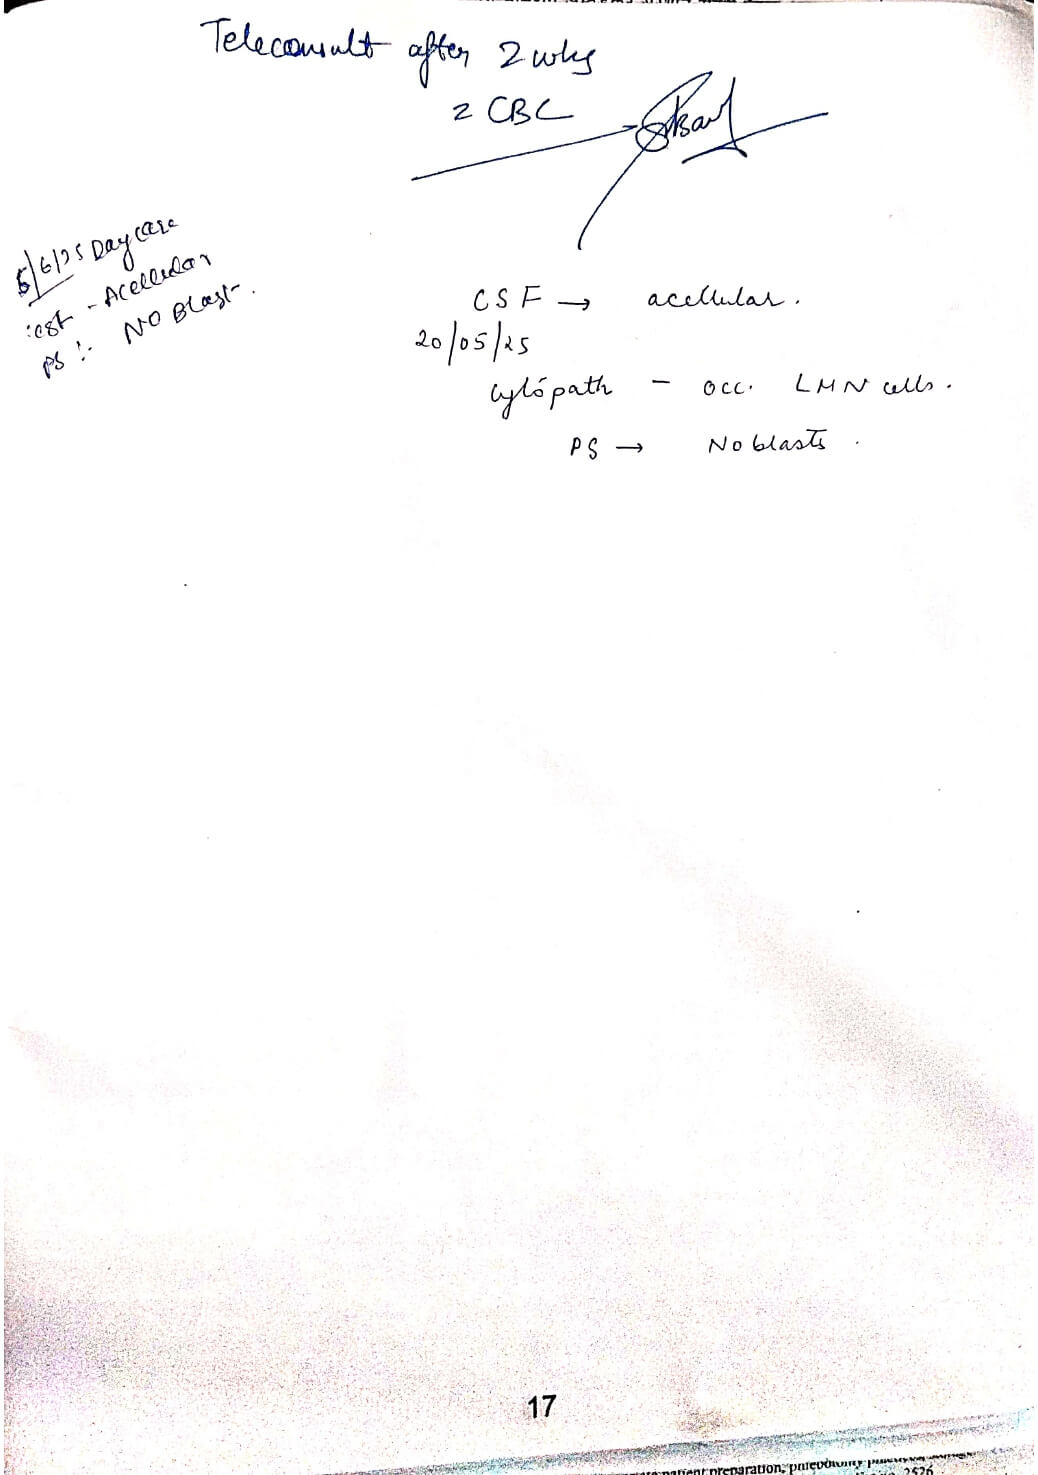 Teleconsult after 2 wks
2 CBC
5/6/25 Day care
:csf - Acellular
PS :- NO Blast .
CSF → acellular .
20/05/25
Cytopath – occ. LMN cells .
PS → No blasts .
17
patient preparation, phlebotomy